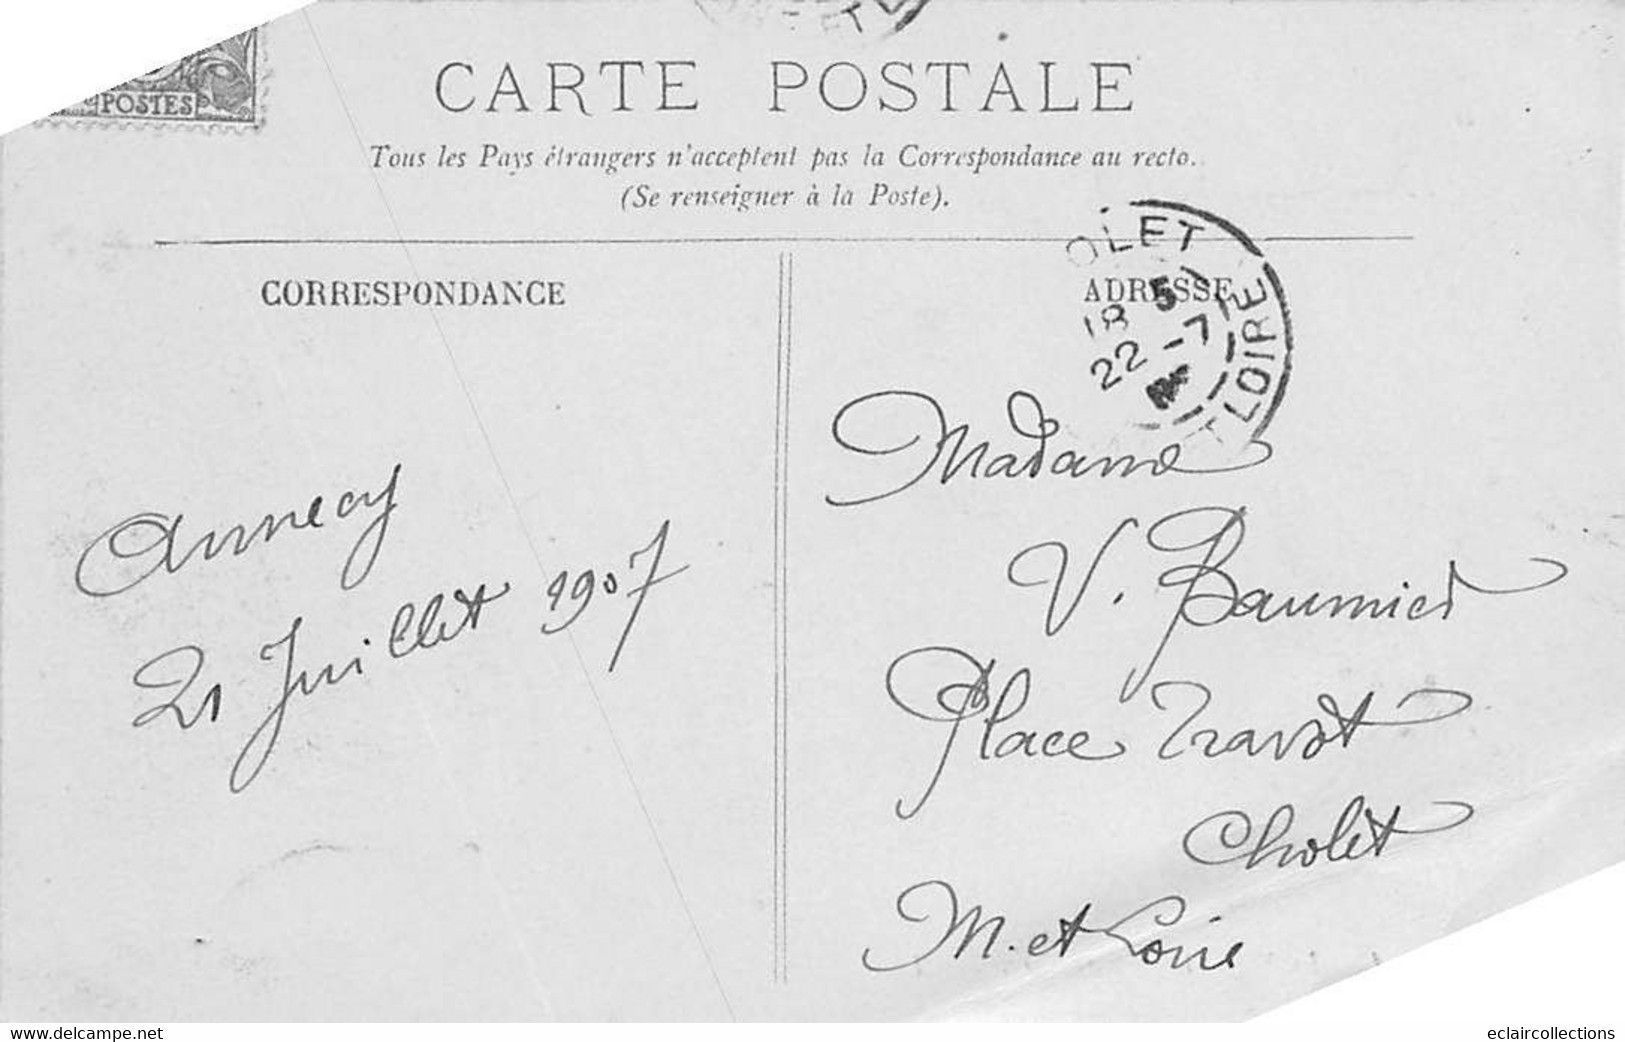 POSTES
CARTE POSTALE
Tous les Pays étrangers n'acceptent pas la Correspondance au recto.
(Se renseigner à la Poste).
OLET
CORRESPONDANCE
ADRESSE
18 5
22 -7
T LOIRE
Annecy
21 Juillet 1907
Madame
V. Baumier
Place Travot
Cholet
M. et Loire
www.delcampe.net
eclaircollections